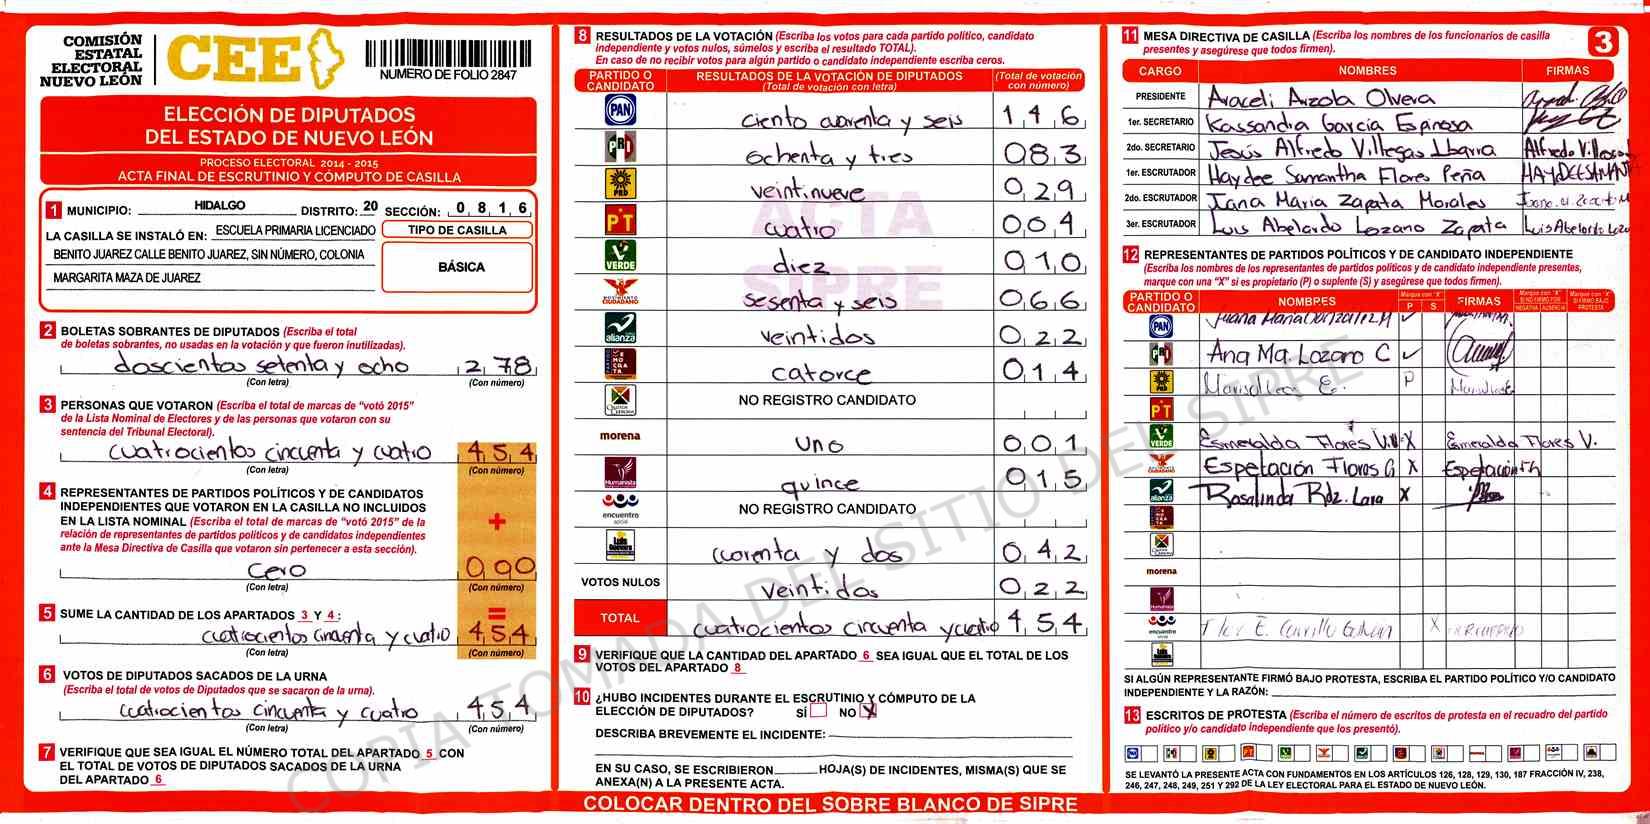 COMISIÓN
ESTATAL
ELECTORAL
NUEVO LEÓN
CEE
NUMERO DE FOLIO 2847
ELECCIÓN DE DIPUTADOS
DEL ESTADO DE NUEVO LEÓN
PROCESO ELECTORAL 2014 - 2015
ACTA FINAL DE ESCRUTINIO Y CÓMPUTO DE CASILLA
1 MUNICIPIO: HIDALGO DISTRITO: 20 SECCIÓN: 0 8 1 6
LA CASILLA SE INSTALÓ EN: ESCUELA PRIMARIA LICENCIADO
BENITO JUAREZ CALLE BENITO JUAREZ, SIN NÚMERO, COLONIA
MARGARITA MAZA DE JUAREZ
TIPO DE CASILLA
BÁSICA
2 BOLETAS SOBRANTES DE DIPUTADOS (Escriba el total
de boletas sobrantes, no usadas en la votación y que fueron inutilizadas).
doscientos setenta y ocho 2 7 8
(Con letra) (Con número)
3 PERSONAS QUE VOTARON (Escriba el total de marcas de “votó 2015”
de la Lista Nominal de Electores y de las personas que votaron con su
sentencia del Tribunal Electoral).
cuatrocientos cincuenta y cuatro 4 5 4
(Con letra) (Con número)
4 REPRESENTANTES DE PARTIDOS POLÍTICOS Y DE CANDIDATOS
INDEPENDIENTES QUE VOTARON EN LA CASILLA NO INCLUIDOS
EN LA LISTA NOMINAL (Escriba el total de marcas de “votó 2015” de la
relación de representantes de partidos políticos y de candidatos independientes
ante la Mesa Directiva de Casilla que votaron sin pertenecer a esta sección).
+
cero 0 0 0
(Con letra) (Con número)
5 SUME LA CANTIDAD DE LOS APARTADOS 3 Y 4 :
=
cuatrocientos cincuenta y cuatro 4 5 4
(Con letra) (Con número)
6 VOTOS DE DIPUTADOS SACADOS DE LA URNA
(Escriba el total de votos de Diputados que se sacaron de la urna).
cuatrocientos cincuenta y cuatro 4 5 4
(Con letra) (Con número)
7 VERIFIQUE QUE SEA IGUAL EL NÚMERO TOTAL DEL APARTADO 5 CON
EL TOTAL DE VOTOS DE DIPUTADOS SACADOS DE LA URNA
DEL APARTADO 6
8 RESULTADOS DE LA VOTACIÓN (Escriba los votos para cada partido político, candidato
independiente y votos nulos, súmelos y escriba el resultado TOTAL).
En caso de no recibir votos para algún partido o candidato independiente escriba ceros.
PARTIDO O CANDIDATO RESULTADOS DE LA VOTACIÓN DE DIPUTADOS (Total de votación con letra) (Total de votación con número)
PAN ciento cuarenta y seis 1 4 6
PRI ochenta y tres 0 8 3
PRD veintinueve 0 2 9
PT cuatro 0 0 4
VERDE diez 0 1 0
MOVIMIENTO CIUDADANO sesenta y seis 0 6 6
alianza veintidos 0 2 2
DEMOCRATA catorce 0 1 4
NO REGISTRO CANDIDATO
morena uno 0 0 1
Humanista quince 0 1 5
encuentro social NO REGISTRO CANDIDATO
cuarenta y dos 0 4 2
VOTOS NULOS veintidos 0 2 2
TOTAL cuatrocientos cincuenta y cuatro 4 5 4
ACTA
SIPRE
9 VERIFIQUE QUE LA CANTIDAD DEL APARTADO 6 SEA IGUAL QUE EL TOTAL DE LOS
VOTOS DEL APARTADO 8
10 ¿HUBO INCIDENTES DURANTE EL ESCRUTINIO Y CÓMPUTO DE LA
ELECCIÓN DE DIPUTADOS? SÍ NO X
DESCRIBA BREVEMENTE EL INCIDENTE:
EN SU CASO, SE ESCRIBIERON HOJA(S) DE INCIDENTES, MISMA(S) QUE SE
ANEXA(N) A LA PRESENTE ACTA.
COLOCAR DENTRO DEL SOBRE BLANCO DE SIPRE
11 MESA DIRECTIVA DE CASILLA (Escriba los nombres de los funcionarios de casilla
presentes y asegúrese que todos firmen).
3
CARGO NOMBRES FIRMAS
PRESIDENTE Araceli Arzola Olvera
1er. SECRETARIO Kassandra García Espinosa
2do. SECRETARIO Jesús Alfredo Villegas Ibarra Alfredo
1er. ESCRUTADOR Haydee Samantha Flores Peña
2do. ESCRUTADOR Juana Maria Zapata Morales
3er. ESCRUTADOR Luis Abelardo Lozano Zapata Luis Abelardo
12 REPRESENTANTES DE PARTIDOS POLÍTICOS Y DE CANDIDATO INDEPENDIENTE
(Escriba los nombres de los representantes de partidos politicos y de candidato independiente presentes,
marque con una “X” si es propietario (P) o suplente (S) y asegúrese que todos firmen).
PARTIDO O CANDIDATO NOMBRES Marque con "X" P S FIRMAS Marque con "X" SI NO FIRMÓ POR NEGATIVA AUSENCIA Marque con "X" SI FIRMÓ BAJO PROTESTA
PAN Juana Maria
PRI Ana Ma. Lozano C
PRD P
PT
VERDE Esmeralda Flores X Esmeralda Flores V.
Flores G X
alianza Rosalinda Rdz. Lara X
morena
Humanista
encuentro social Flor E. X
SI ALGÚN REPRESENTANTE FIRMÓ BAJO PROTESTA, ESCRIBA EL PARTIDO POLÍTICO Y/O CANDIDATO
INDEPENDIENTE Y LA RAZÓN:
13 ESCRITOS DE PROTESTA (Escriba el número de escritos de protesta en el recuadro del partido
político y/o candidato independiente que los presentó).
SE LEVANTÓ LA PRESENTE ACTA CON FUNDAMENTOS EN LOS ARTÍCULOS 126, 128, 129, 130, 187 FRACCIÓN IV, 238,
246, 247, 248, 249, 251 Y 292 DE LA LEY ELECTORAL PARA EL ESTADO DE NUEVO LEÓN.
COPIA TOMADA DEL SITIO DEL SIPRE